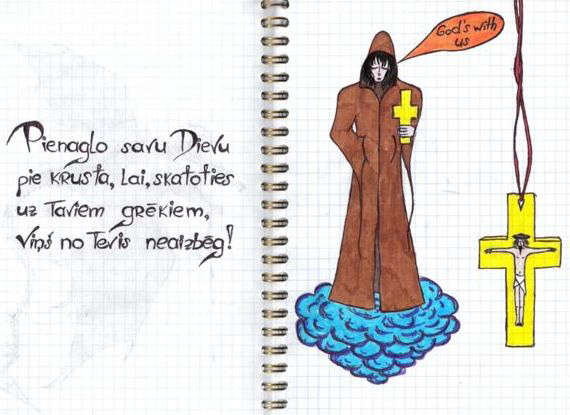 Pienaglo savu Dievu
pie krusta, Lai, skatoties
uz Taviem grēkiem,
Viņš no Tevis neaizbēg!
God's with
us